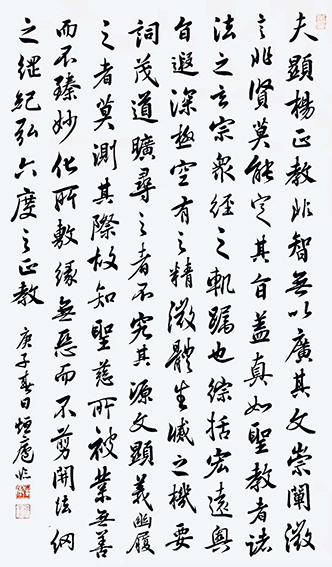 夫顯楊正教非智無以廣其文崇闡微
言非賢莫能定其旨蓋真如聖教者諸
法之玄宗衆經之軌躅也綜括宏遠奧
旨遐深極空有之精微體生滅之機要
詞茂道曠尋之者不究其源文顯義幽履
之者莫測其際故知聖慈所被業無善
而不臻妙化所敷緣無惡而不剪開法網
之綱紀弘六度之正教
庚子春日庵临